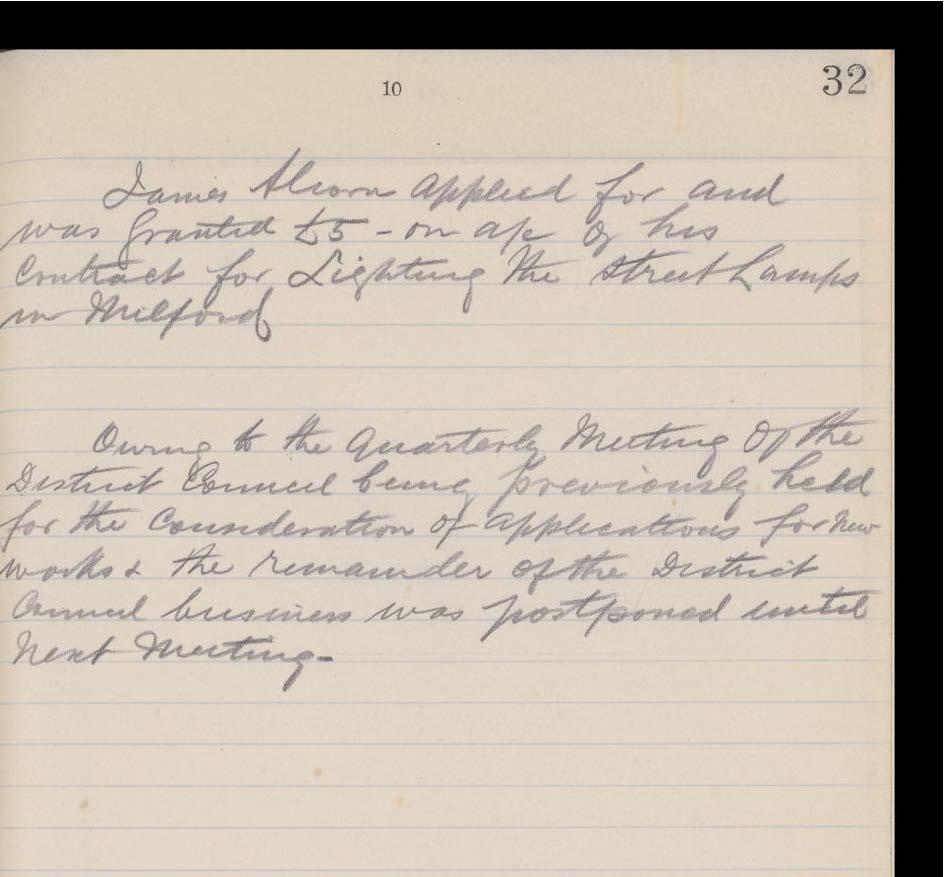 10
32
James Alcorn applied for and
was granted £5 - on a/c of his
Contract for Lighting the Street Lamps
in Milford
Owing to the Quarterly Meeting of the
District Council being previously held
for the Consideration of applications for New
works & the remainder of the District
Council business was postponed until
Next Meeting -